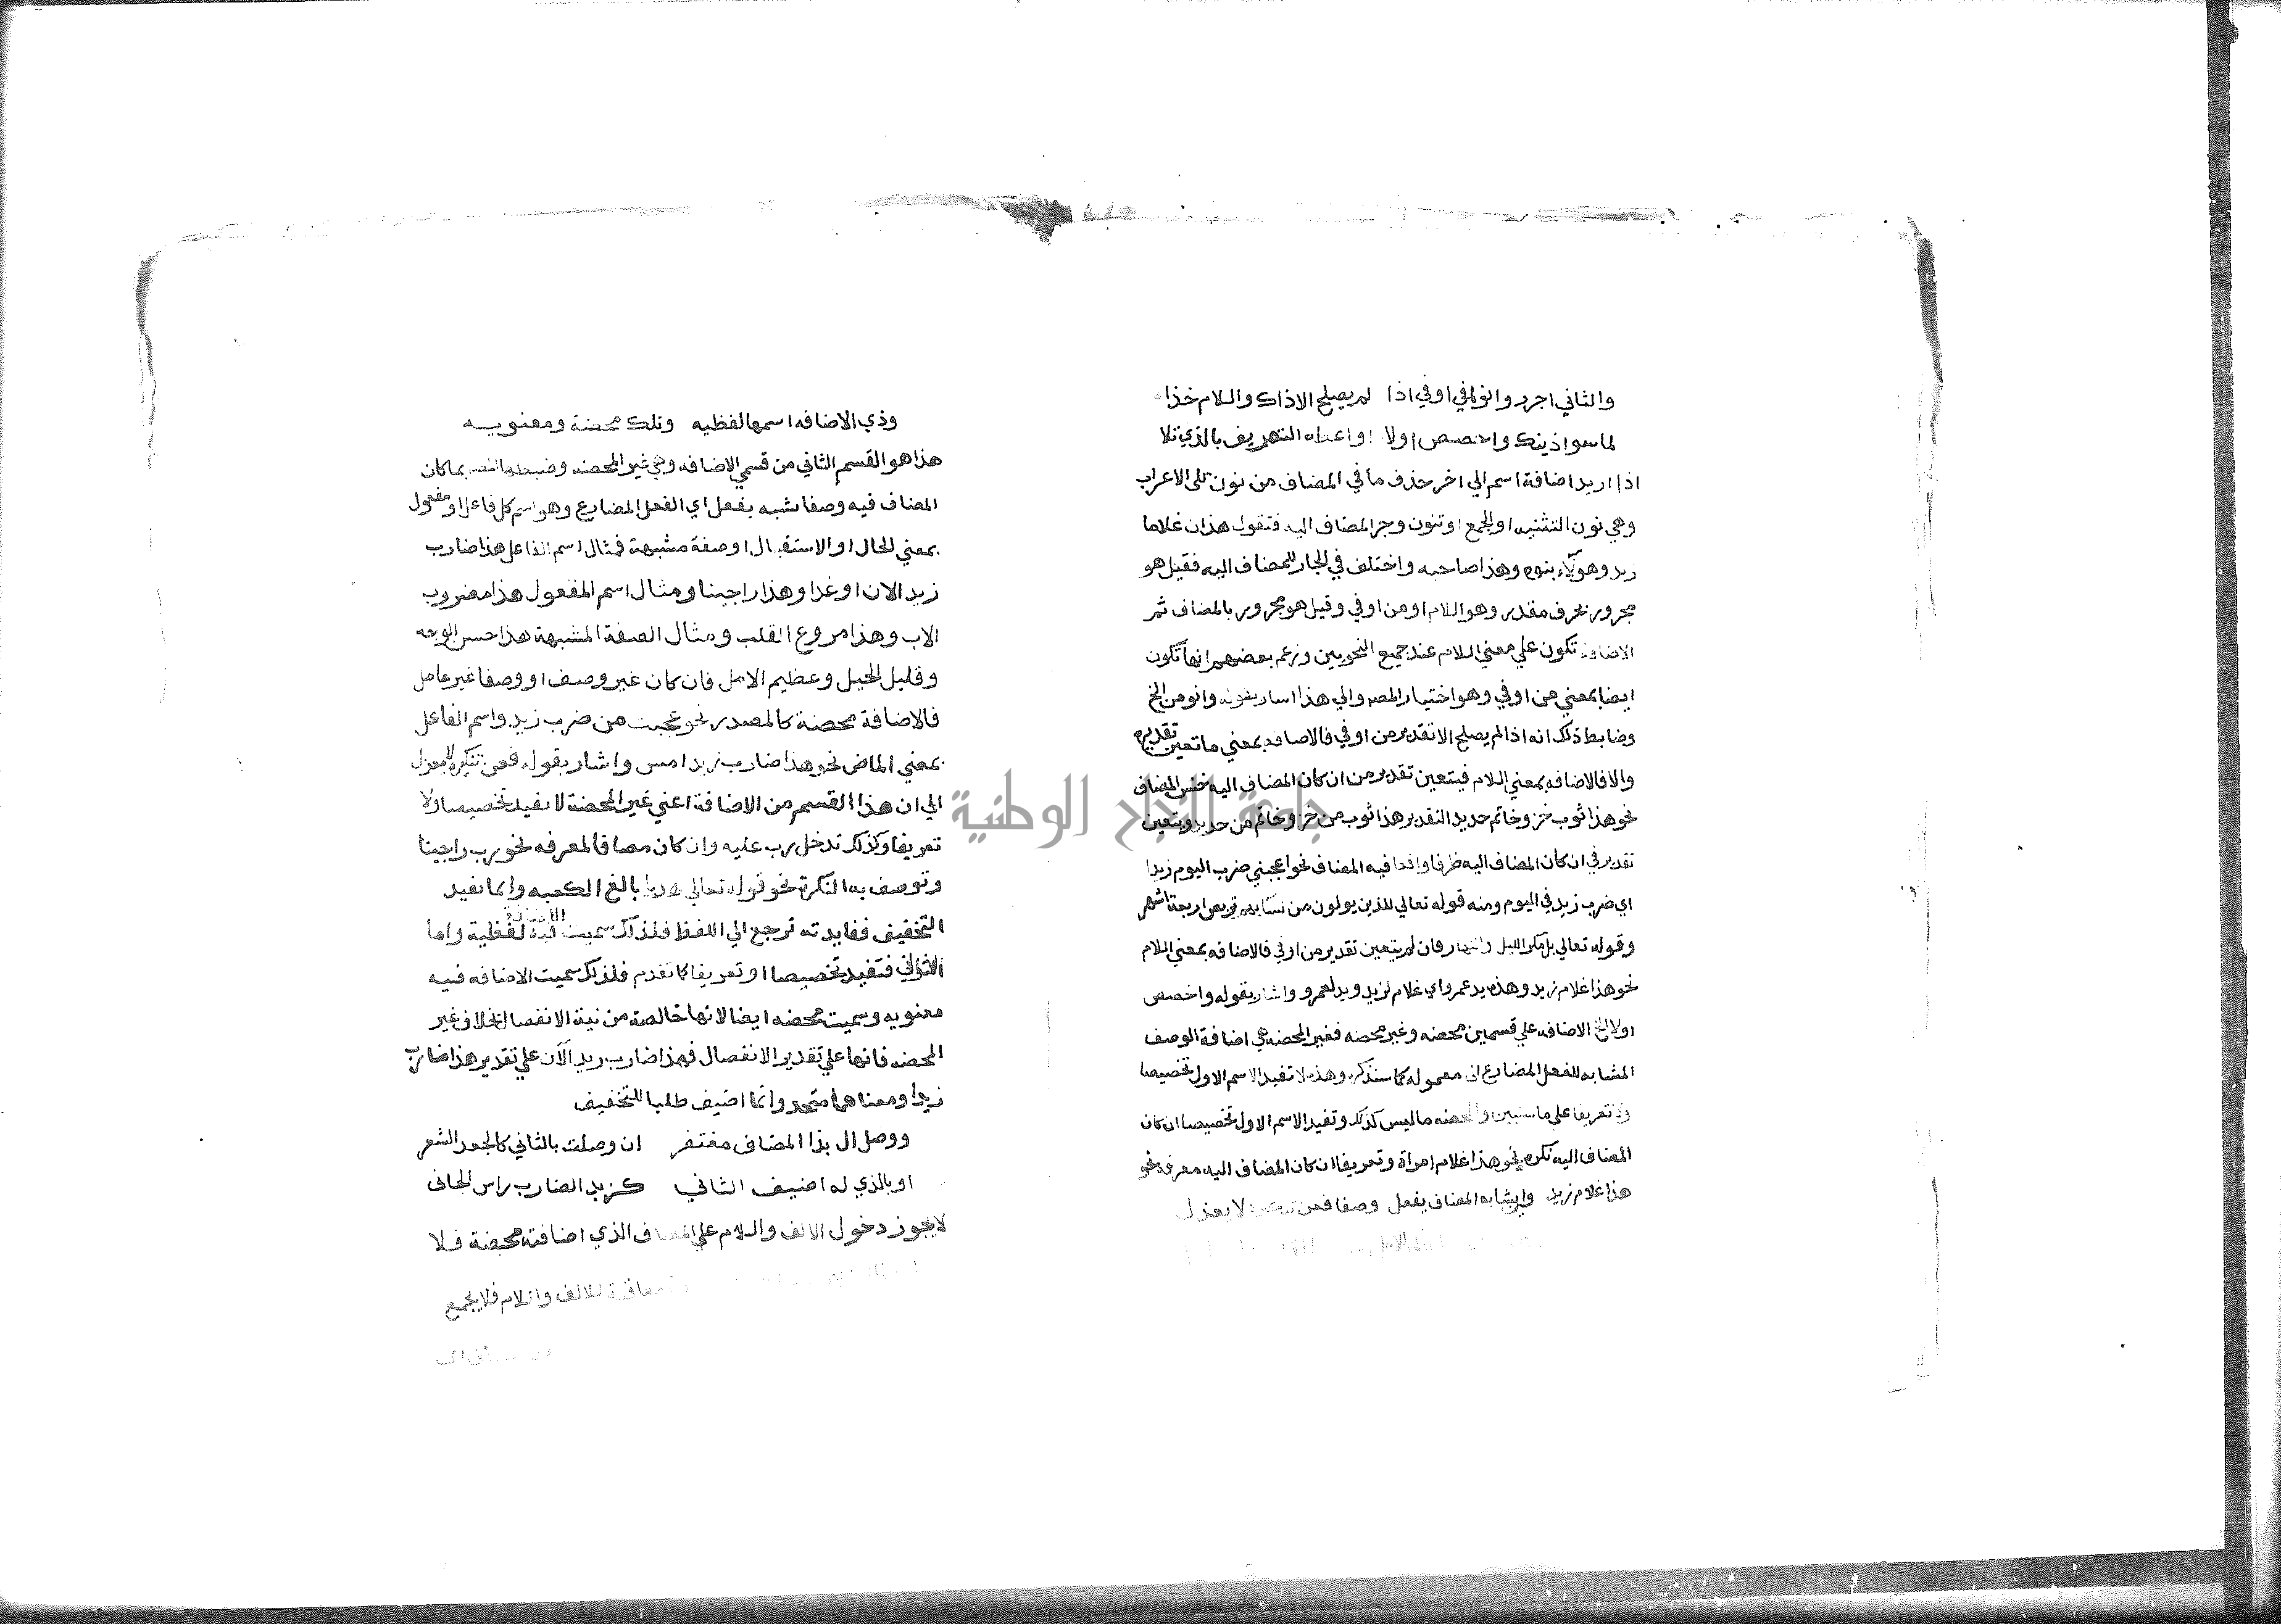 والثاني اجرر وانوا في او في اذا لم يصلح الا ذاك واللام خذا
لما سوا ذينك واخصص اولا او اعطه التعريف بالذي تلا
اذا اريد اضافة اسم الي اخر حذف ما في المضاف من نون تلى الاعراب
وهي نون التثنيه او الجمع او تنون وجر المضاف اليه فتقول هذان غلاما
زيد وهولآء بنوه وهذا صاحبه واختلف في الجار للمضاف اليه فقيل هو
مجرور بحرف مقدر وهو اللام او من او في وقيل هو مجرور بالمضاف ثم
الاضافة تكون علي معني اللام عند جميع النحويين وزعم بعضهم انها تكون
ايضا بمعني من او في وهو اختيار المصه والي هذا اشار بقوله وانو من الخ
وضابط ذلك انه اذا لم يصلح الا تقدير من او في فالاضافه بمعني ما تعين تقديره
والا فالاضافه بمعني اللام فيتعين تقدير من ان كان المضاف اليه جنس المضاف
نحو هذا ثوب خز وخاتم حديد التقدير هذا ثوب من خز وخاتم من حديد ويتعين
تقدير في ان كان المضاف اليه ظرفا واقعا فيه المضاف نحو اعجبني ضرب اليوم زيدا
اي ضرب زيد في اليوم ومنه قوله تعالي للذين يولون من نسايهم تربص اربعة اشهر
وقوله تعالي بل مكر الليل والنهار فان لم يتعين تقدير من او في فالاضافه بمعني اللام
نحو هذا غلام زيد وهذه يد عمرو اي غلام لزيد ويد لعمرو واشار بقوله واخصص
اولا الخ الاضافه علي قسمين محضه وغير محضه فغير المحضه هي اضافة الوصف
المشابه للفعل المضارع الى معموله كما سنذكره وهذه لا تفيد الاسم الاول تخصيصا
ولا تعريفا علي ما سنبين والمحضه ما ليس كذلك وتفيد الاسم الاول تخصيصا ان كان
المضاف اليه نكره نحو هذا غلام امراة وتعريفا ان كان المضاف اليه معرفه نحو
هذا غلام زيد وان يشابه المضاف يفعل وصفا فعن تنكيره لا يعزل
وذي الاضافه اسمها لفظيه وتلك محضة ومعنويه
هذا هو القسم الثاني من قسمي الاضافه وهي غير المحضه وضبطه المصه بما كان
المضاف فيه وصفا شبه يفعل اي الفعل المضارع وهو اسم كل فاعل او مفعول
بمعني الحال او الاستقبال او صفة مشبهة فمثال اسم الفاعل هذا ضارب
زيد الان او غدا وهذا راجينا ومثال اسم المفعول هذا مضروب
الاب وهذا مروع القلب ومثال الصفة المشبهة هذا حسن الوجه
وقليل الحيل وعظيم الامل فان كان غير وصف او وصفا غير عامل
فالاضافة محضة كالمصدر نحو عجبت من ضرب زيد واسم الفاعل
بمعني الماض نحو هذا ضارب زيد امس واشار بقوله فعن تنكيره لا يعزل
الي ان هذا القسم من الاضافة اعني غير المحضة لا يفيد تخصيصا ولا
تعريفا وكذلك تدخل رب عليه وان كان مضافا لمعرفه نحو رب راجينا
وتوصف به النكرة نحو قوله تعالي هديا بالغ الكعبه وانما يفيد
التخفيف ففايدته ترجع الي اللفظ فلذلك سميت الاضافة فيه لفظية واما
الثاني فتفيد تخصيصا او تعريفا كما تقدم فلذلك سميت الاضافه فيه
معنويه وسميت محضه ايضا لانها خالصة من نية الانفصال بخلاف غير
المحضه فانها علي تقدير الانفصال فهذا ضارب زيد الآن علي تقدير هذا ضارب
زيدا ومعناهما متحد وانما اضيف طلبا للتخفيف
ووصل ال بذا المضاف مغتفر ان وصلت بالثاني كالجعد الشعر
او بالذي له اضيف الثاني كزيد الضارب راس الجاني
لا يجوز دخول الالف واللام علي المضاف الذي اضافته محضة فلا
معاقبة للالف واللام فلا يجمع
جامعة النجاح الوطنية